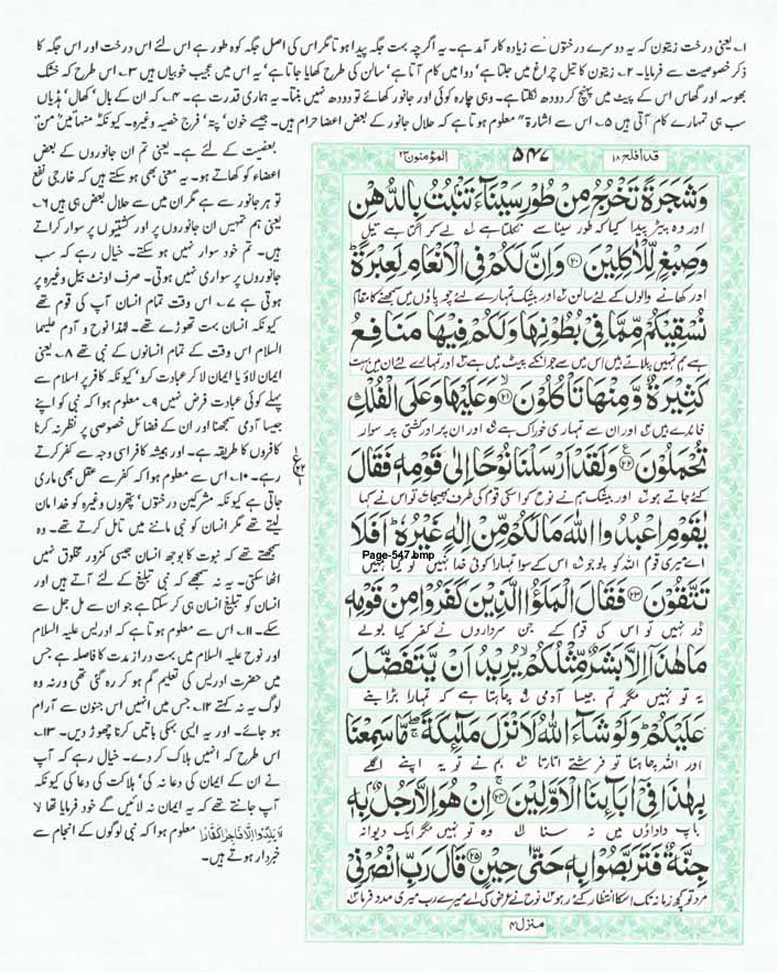 ۱۔ یعنی درخت زیتون کہ یہ دوسرے درختوں سے زیادہ کار آمد ہے۔ یہ اگرچہ بہت جگہ پیدا ہوتا مگر اس کی اصل جگہ کوہ طور ہے اس لئے اس درخت اور اس جگہ کا
ذکر خصوصیت سے فرمایا۔ ۲۔ زیتون کا تیل چراغ میں جلتا ہے، دوا میں کام آتا ہے، سالن کی طرح کھایا جاتا ہے، یہ اس میں عجیب خوبیاں ہیں ۳۔ اس طرح کہ خشک
بھوسہ اور گھاس اس کے پیٹ میں پہنچ کر دودھ نکلتا ہے۔ وہی چارہ کوئی اور جانور کھائے تو دودھ نہیں بنتا۔ یہ ہماری قدرت ہے۔ ۴۔ کہ ان کے بال، کھال، ہڈیاں
سب ہی تمہارے کام آتی ہیں ۵۔ اس سے اشارۃً معلوم ہوتا ہے کہ حلال جانور کے بعض اعضا حرام ہیں۔ جیسے خون، پتہ، فرج خصیہ وغیرہ۔ کیونکہ منہا میں من
قد افلح ۱۸
۵۴۷
المؤمنون ۲۳
وَشَجَرَةً تَخْرُجُ مِنْ طُوْرِ سَيْنَآءَ تَنْبُتُ بِالدُّهْنِ
اور وہ پیڑ پیدا کیا کہ طور سینا سے نکلتا ہے لے کر اگتا ہے تیل
وَصِبْغٍ لِّلْاٰكِلِيْنَ ۝۲۰ وَاِنَّ لَكُمْ فِى الْاَنْعَامِ لَعِبْرَةً
اور کھانے والوں کے لئے سالن اور بیشک تمہارے لئے چوپاؤں میں سمجھنے کا مقام
نُسْقِيْكُمْ مِّمَّا فِىْ بُطُوْنِهَا وَلَكُمْ فِيْهَا مَنَافِعُ
ہے ہم تمہیں پلاتے ہیں اس میں سے جو انکے پیٹ میں ہے اور تمہارے لئے ان میں بہت
كَثِيْرَةٌ وَّمِنْهَا تَاْكُلُوْنَ ۝۲۱ وَعَلَيْهَا وَعَلَى الْفُلْكِ
فائدے ہیں اور ان سے تمہاری خوراک ہے اور ان پر اور کشتی پر سوار
تُحْمَلُوْنَ ۝۲۲ وَلَقَدْ اَرْسَلْنَا نُوْحًا اِلٰى قَوْمِهٖ فَقَالَ
کئے جاتے ہو اور بیشک ہم نے نوح کو اسکی قوم کی طرف بھیجا تو اس نے کہا
يٰقَوْمِ اعْبُدُوا اللّٰهَ مَا لَكُمْ مِّنْ اِلٰهٍ غَيْرُهٗ ؕ اَفَلَا
Page-547.bmp
اے میری قوم اللہ کو پوجو اس کے سوا تمہارا کوئی خدا نہیں تو کیا تمہیں
تَتَّقُوْنَ ۝۲۳ فَقَالَ الْمَلَؤُا الَّذِيْنَ كَفَرُوْا مِنْ قَوْمِهٖ
ڈر نہیں تو اس کی قوم کے جن سرداروں نے کفر کیا بولے
مَا هٰذَآ اِلَّا بَشَرٌ مِّثْلُكُمْ ۙ يُرِيْدُ اَنْ يَّتَفَضَّلَ
یہ تو نہیں مگر تم جیسا آدمی چاہتا ہے کہ تمہارا بڑا بنے
عَلَيْكُمْ ؕ وَلَوْ شَآءَ اللّٰهُ لَاَنْزَلَ مَلٰٓئِكَةً ۖ مَّا سَمِعْنَا
اور اللہ چاہتا تو فرشتے اتارتا ہم نے تو یہ اپنے اگلے
بِهٰذَا فِىْٓ اٰبَآئِنَا الْاَوَّلِيْنَ ۝۲۴ اِنْ هُوَ اِلَّا رَجُلٌۢ بِهٖ
باپ داداؤں میں نہ سنا وہ تو نہیں مگر ایک دیوانہ
جِنَّةٌ فَتَرَبَّصُوْا بِهٖ حَتّٰى حِيْنٍ ۝۲۵ قَالَ رَبِّ انْصُرْنِىْ
مرد تو کچھ زمانہ تک اسکا انتظار کئے رہو نوح نے عرض کی اے میرے رب میری مدد فرما
منزل ۴
بعضیت کے لئے ہے۔ یعنی تم ان جانوروں کے بعض
اعضاء کو کھاتے ہو۔ یہ معنی بھی ہو سکتے ہیں کہ خارجی نفع
تو ہر جانور سے ہے مگر ان میں سے حلال بعض ہی ہیں ۶۔
یعنی ہم تمہیں ان جانوروں پر اور کشتیوں پر سوار کراتے
ہیں۔ تم خود سوار نہیں ہو سکتے۔ خیال رہے کہ سب
جانوروں پر سواری نہیں ہوتی۔ صرف اونٹ بیل وغیرہ پر
ہوتی ہے ۷۔ اس وقت تمام انسان آپ کی قوم تھے
کیونکہ انسان بہت تھوڑے تھے۔ لہٰذا نوح و آدم علیہما
السلام اس وقت کے تمام انسانوں کے نبی تھے ۸۔ یعنی
ایمان لاؤ یا ایمان لا کر عبادت کرو، کیونکہ کافر پر اسلام سے
پہلے کوئی عبادت فرض نہیں ۹۔ معلوم ہوا کہ نبی کو اپنے
جیسا آدمی سمجھنا اور ان کے فضائل خصوصی پر نظر نہ کرنا
کافروں کا طریقہ ہے۔ اور ہمیشہ کافر اسی وجہ سے کفر کرتے
رہے۔ ۱۰۔ اس سے معلوم ہوا کہ کفر سے عقل بھی ماری
جاتی ہے کیونکہ مشرکین درختوں، پتھروں وغیرہ کو خدا مان
لیتے تھے مگر انسان کو نبی ماننے میں تامل کرتے تھے۔ وہ
سمجھتے تھے کہ نبوت کا بوجھ انسان جیسی کمزور مخلوق نہیں
اٹھا سکتی۔ یہ نہ سمجھے کہ نبی تبلیغ کے لئے آتے ہیں اور
انسان کو تبلیغ انسان ہی کر سکتا ہے جو ان سے مل جل سے
سکے۔ ۱۱۔ اس سے معلوم ہوتا ہے کہ ادریس علیہ السلام
اور نوح علیہ السلام میں بہت دراز مدت کا فاصلہ ہے جس
میں حضرت ادریس کی تعلیم گم ہو کر رہ گئی تھی ورنہ وہ
لوگ یہ نہ کہتے ۱۲۔ جس میں انہیں اس جنون سے آرام
ہو جائے۔ اور یہ ایسی بہکی باتیں کرنا چھوڑ دیں۔ ۱۳۔
اس طرح کہ انہیں ہلاک کر دے۔ خیال رہے کہ آپ
نے ان کے ایمان کی دعا نہ کی، ہلاکت کی دعا کی کیونکہ
آپ جانتے تھے کہ یہ ایمان نہ لائیں گے خود فرمایا تھا لا
لَا يَلِدُوْٓا اِلَّا فَاجِرًا كَفَّارًا معلوم ہوا کہ نبی لوگوں کے انجام سے
خبردار ہوتے ہیں۔